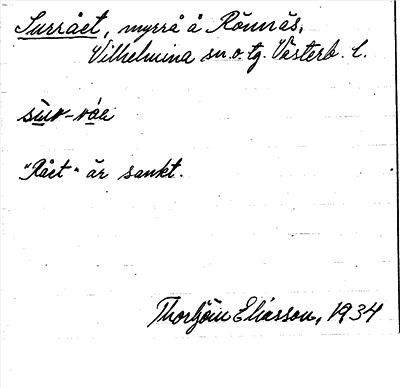 Surrået, myrrå å Rönnäs,
Vilhelmina sn. o. tg. Västerb. l.
"Rået" är sankt.
Thorbjörn Eliasson, 1934